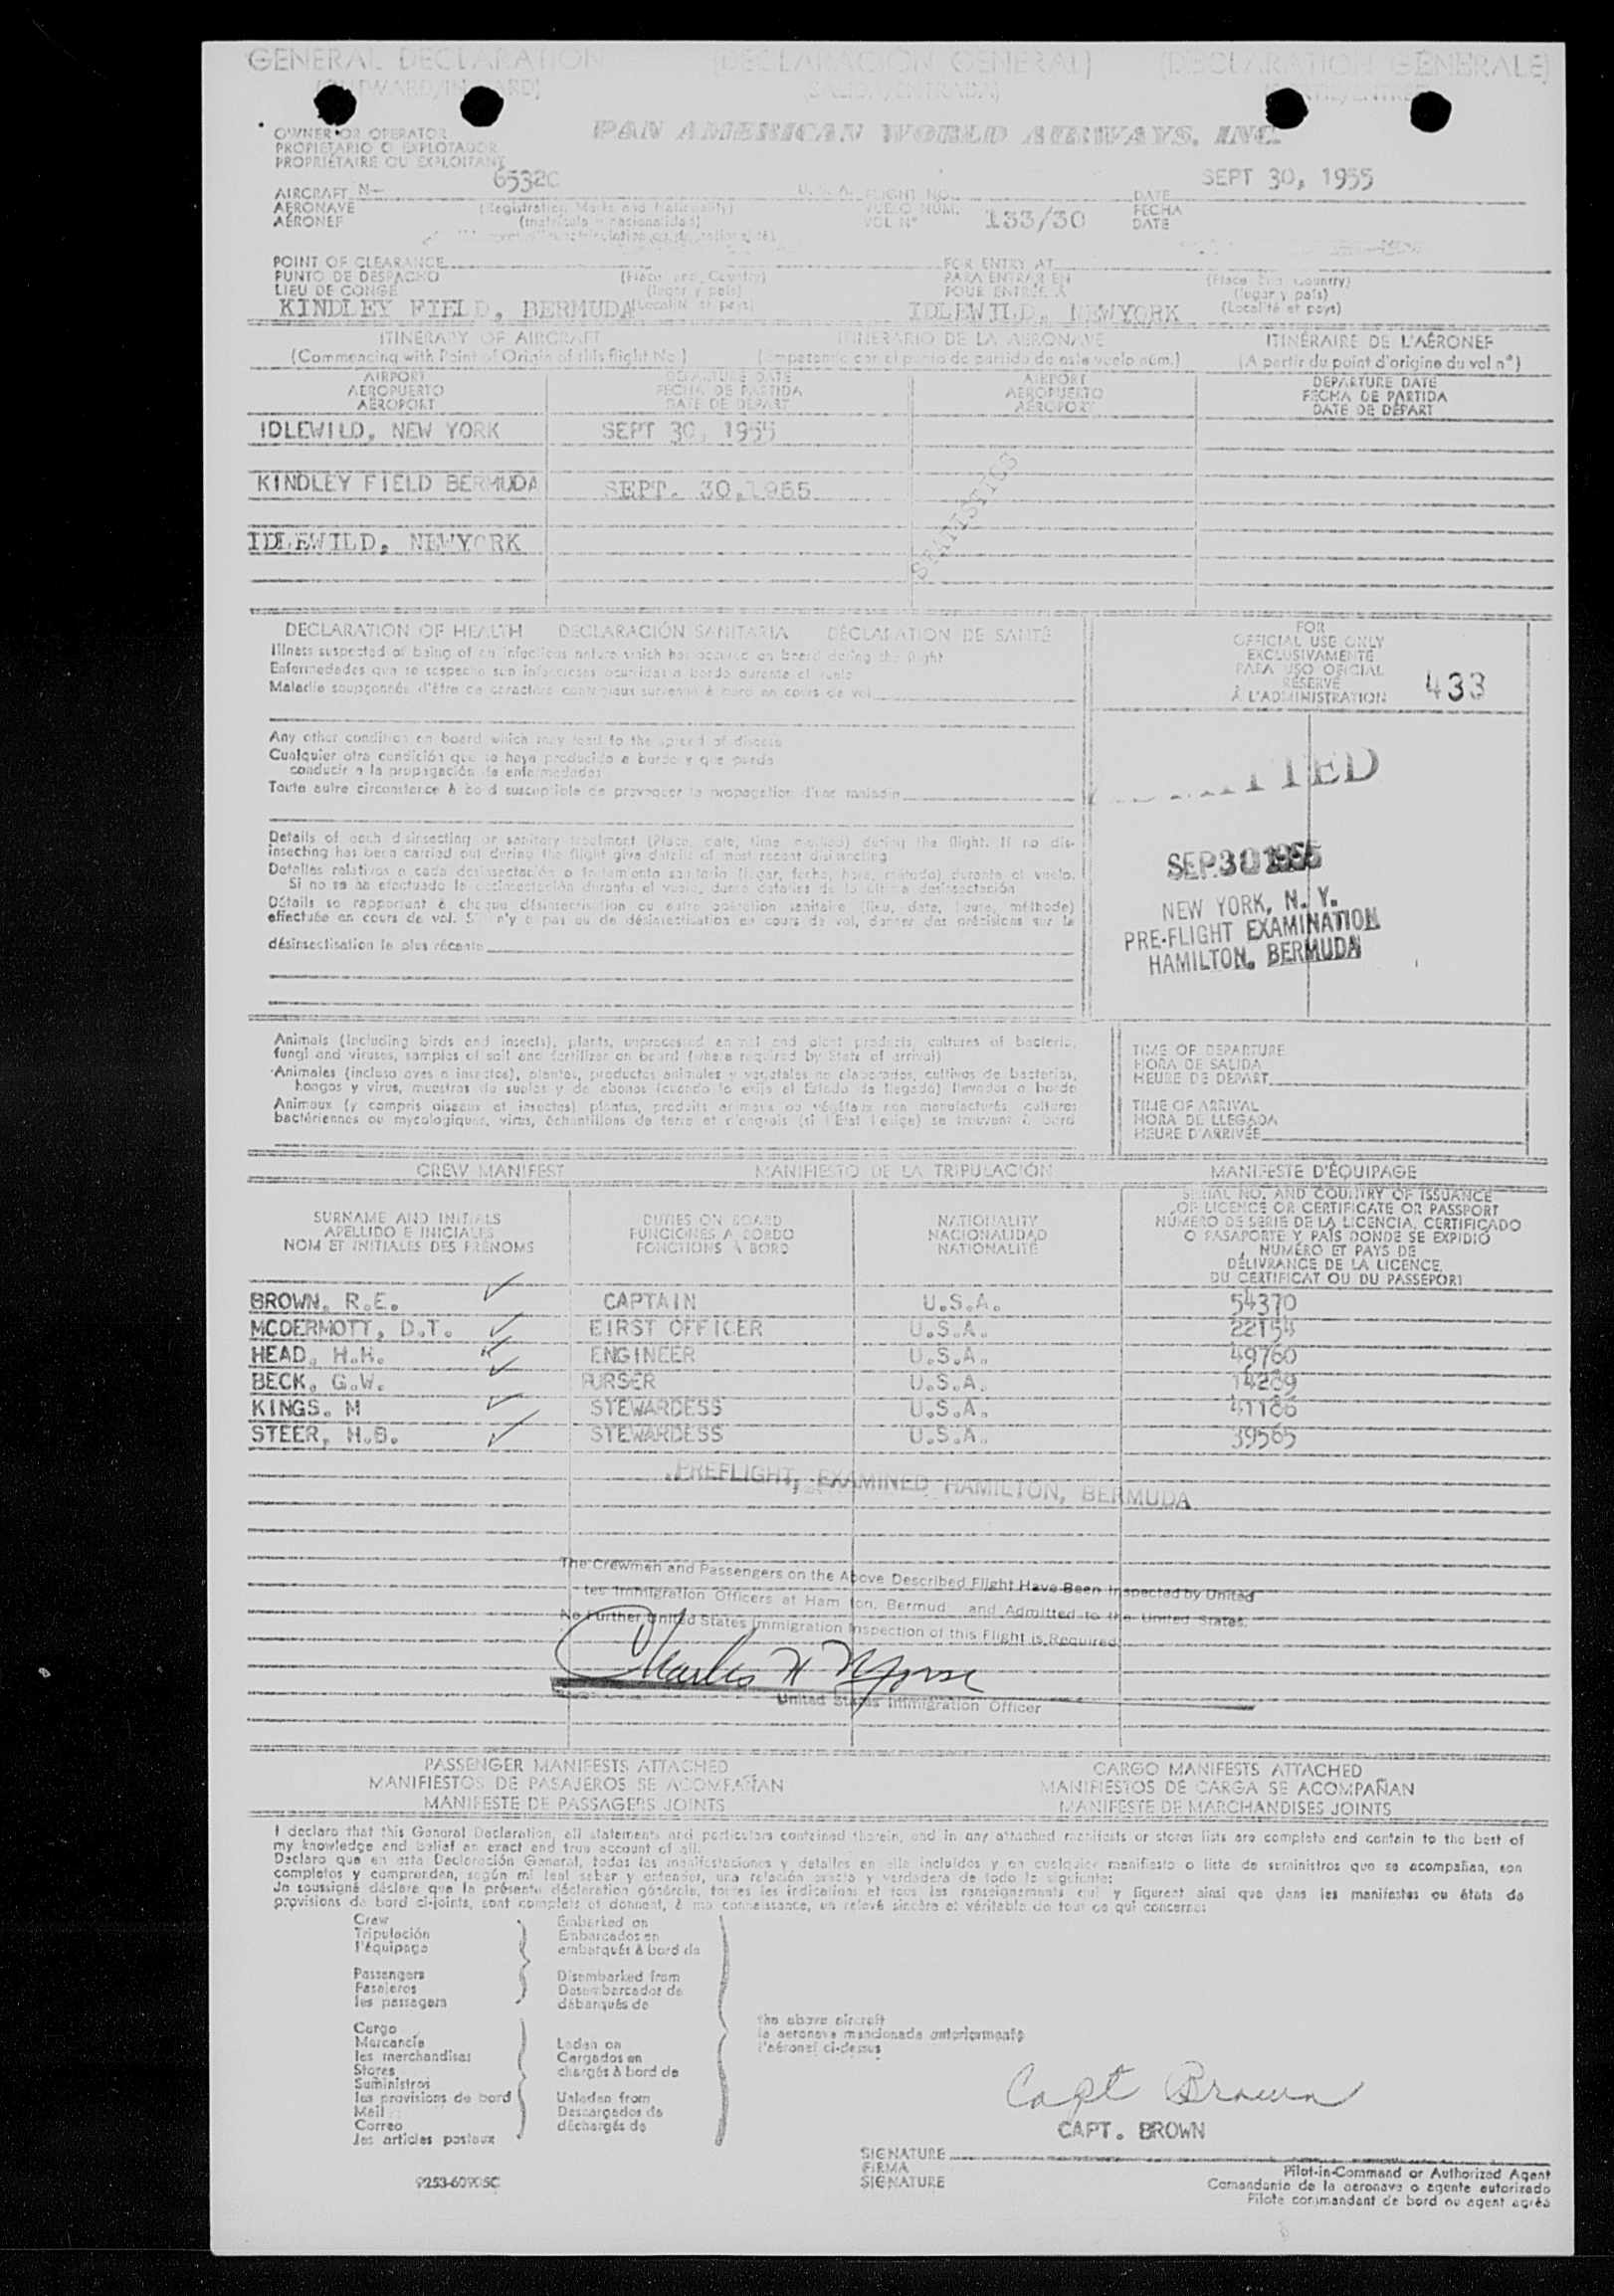 GENERAL DECLARATION (DECLARACIÓN GENERAL) (DECLARATION GENERALE)
OWNER OR OPERATOR
PROPIETARIO O EXPLOTADOR
PROPRIÉTAIRE OU EXPLOITANT
PAN AMERICAN WORLD AIRWAYS, INC.
AIRCRAFT N- 6532C U. S. A. FLIGHT NO. DATE SEPT 30, 1955
AERONAVE (Registration Marks and Nationality) VUELO NUM. 133/30 FECHA
AÉRONEF (matrícula y nacionalidad) VOL N° DATE
POINT OF CLEARANCE FOR ENTRY AT
PUNTO DE DESPACHO (Place and Country) PARA ENTRAR EN (Place and Country)
LIEU DE CONGÉ (lugar y país) POUR ENTRÉE À (lugar y país)
KINDLEY FIELD, BERMUDA (Localité et pays) IDLEWILD, NEWYORK (Localité et pays)
ITINERARY OF AIRCRAFT ITINERARIO DE LA AERONAVE ITINÉRAIRE DE L'AÉRONEF
(Commencing with Point of Origin of this flight No.) (empezando con el punto de partida de este vuelo núm.) (A partir du point d'origine du vol n°)
AIRPORT DEPARTURE DATE AIRPORT DEPARTURE DATE
AEROPUERTO FECHA DE PARTIDA AEROPUERTO FECHA DE PARTIDA
AÉROPORT DATE DE DÉPART AÉROPORT DATE DE DÉPART
IDLEWILD, NEW YORK SEPT 30, 1955
KINDLEY FIELD BERMUDA SEPT. 30,1955
STATISTICS
IDLEWILD, NEWYORK
DECLARATION OF HEALTH DECLARACIÓN SANITARIA DÉCLARATION DE SANTÉ
Illness suspected of being of an infectious nature which has occurred on board during the flight
Enfermedades que se sospecha son infecciosas ocurridas a bordo durante el vuelo
Maladie soupçonnée d'être de caractère contagieux survenue à bord en cours de vol
Any other condition on board which may lead to the spread of disease
Cualquier otra condición que se haya producido a bordo y que pueda
conducir a la propagación de enfermedades
Toute autre circonstance à bord susceptible de provoquer la propagation d'une maladie
Details of each disinsecting or sanitary treatment (Place, date, time, method) during the flight. If no dis-
insecting has been carried out during the flight give details of most recent disinsecting
Detalles relativos a cada desinsectación o tratamiento sanitario (lugar, fecha, hora, método) durante el vuelo.
Si no se ha efectuado la desinsectación durante el vuelo, danse detalles de la última desinsectación
Détails se rapportant à chaque désinsectisation ou autre opération sanitaire (lieu, date, heure, méthode)
effectuée en cours de vol. S'il n'y a pas eu de désinsectisation en cours de vol, donner des précisions sur la
désinsectisation la plus récente
FOR
OFFICIAL USE ONLY
EXCLUSIVAMENTE
PARA USO OFICIAL
RÉSERVÉ
À L'ADMINISTRATION
433
SEP 30 1955
NEW YORK, N. Y.
PRE-FLIGHT EXAMINATION
HAMILTON, BERMUDA
Animals (including birds and insects), plants, unprocessed animal and plant products, cultures of bacteria,
fungi and viruses, samples of soil and fertilizer on board (where required by State of arrival)
Animales (incluso aves e insectos), plantas, productos animales y vegetales no elaborados, cultivos de bacterias,
hongos y virus, muestras de suelos y de abonos (cuando lo exija el Estado de llegada) llevados a bordo
Animaux (y compris oiseaux et insectes) plantes, produits animaux ou végétaux non manufacturés, cultures
bactériennes ou mycologiques, virus, échantillons de terre et d'engrais (si l'État l'exige) se trouvant à bord
TIME OF DEPARTURE
HORA DE SALIDA
HEURE DE DÉPART
TIME OF ARRIVAL
HORA DE LLEGADA
HEURE D'ARRIVÉE
CREW MANIFEST MANIFIESTO DE LA TRIPULACIÓN MANIFESTE D'ÉQUIPAGE
SURNAME AND INITIALS
APELLIDO E INICIALES
NOM ET INITIALES DES PRÉNOMS
DUTIES ON BOARD
FUNCIONES A BORDO
FONCTIONS À BORD
NATIONALITY
NACIONALIDAD
NATIONALITÉ
SERIAL NO. AND COUNTRY OF ISSUANCE
OF LICENCE OR CERTIFICATE OR PASSPORT
NÚMERO DE SERIE DE LA LICENCIA, CERTIFICADO
O PASAPORTE Y PAÍS DONDE SE EXPIDIÓ
NUMÉRO ET PAYS DE
DÉLIVRANCE DE LA LICENCE,
DU CERTIFICAT OU DU PASSEPORT
BROWN, R.E. CAPTAIN U.S.A. 54370
MCDERMOTT, D.T. FIRST OFFICER U.S.A. 22154
HEAD, H.H. ENGINEER U.S.A. 49760
BECK, G.W. PURSER U.S.A. 14269
KINGS. M STEWARDESS U.S.A. 41186
STEER, H.B. STEWARDESS U.S.A. 39565
PREFLIGHT, EXAMINED HAMILTON, BERMUDA
The Crewmen and Passengers on the Above Described Flight Have Been Inspected by United
tes Immigration Officers at Ham ton, Bermud and Admitted to the United States.
No Further United States Immigration Inspection of this Flight is Required
Charles H
United States Immigration Officer
PASSENGER MANIFESTS ATTACHED CARGO MANIFESTS ATTACHED
MANIFIESTOS DE PASAJEROS SE ACOMPAÑAN MANIFIESTOS DE CARGA SE ACOMPAÑAN
MANIFESTE DE PASSAGERS JOINTS MANIFESTE DE MARCHANDISES JOINTS
I declare that this General Declaration, all statements and particulars contained therein, and in any attached manifests or stores lists are complete and contain to the best of
my knowledge and belief an exact and true account of all.
Declaro que en esta Declaración General, todas las manifestaciones y detalles en ella incluidos y en cualquier manifiesto o lista de suministros que se acompañan, son
completos y comprenden, según mi leal saber y entender, una relación exacta y verdadera de todo lo siguiente:
Je soussigné déclare que la présente déclaration générale, toutes les indications et tous les renseignements qui y figurent ainsi que dans les manifestes ou états de
provisions de bord ci-joints, sont complets et donnent, à ma connaissance, un relevé sincère et véritable de tout ce qui concerne:
Crew Embarked on
Tripulación Embarcados en
l'équipage embarqués à bord de
Passengers Disembarked from
Pasajeros Desembarcados de
les passagers débarqués de
Cargo
Mercancía Laden on
les merchandises Cargados en
Stores chargés à bord de
Suministros
les provisions de bord Unladen from
Mail Descargados de
Correo déchargés de
les articles postaux
the above aircraft
la aeronave mencionada anteriormente
l'aéronef ci-dessus
Capt Brown
CAPT. BROWN
SIGNATURE
FIRMA
SIGNATURE
Pilot-in-Command or Authorized Agent
Comandante de la aeronave o agente autorizado
Pilote commandant de bord ou agent agréé
9253-60905C